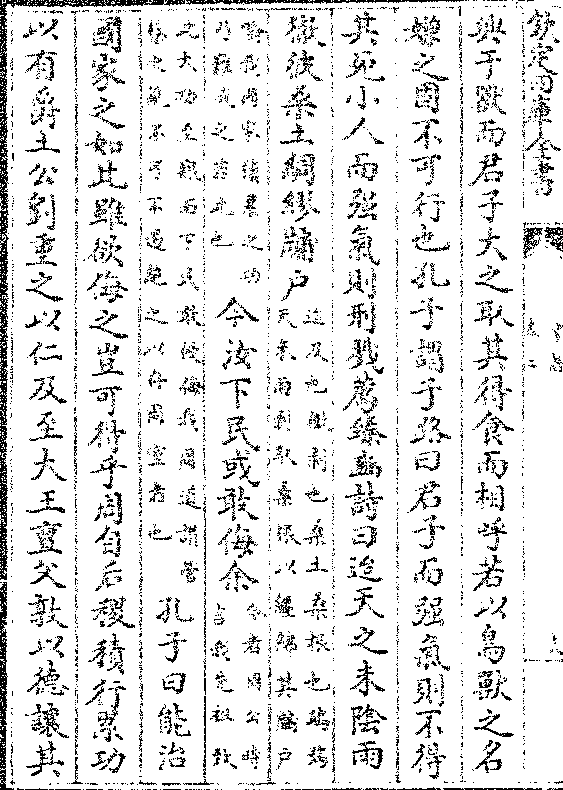 欽定四庫全書
興于獸而君子大之取其得食而相呼若以鳥獸之名
嫌之固不可行也孔子謂子路曰君子而强氣則不得
其死小人而强氣則刑戮薦臻豳詩曰迨天之未陰雨
徹彼桑土綢繆牖户
迨及也徹剥也桑土桑根也鴟鴞
天未雨剥取桑根以纒緜其牖户
喻我周家積累之功
乃難成之若此也
今汝下民或敢侮余
今者周公時
言我先祖致
之大功至艱而下民敢侵侮我周道謂管
蔡之屬不可不遏絶之以存周室者也
孔子曰能治
國家之如此雖欲侮之豈可得乎周自后稷積行累功
以有爵土公劉重之以仁及至大王亶父敦以德讓其